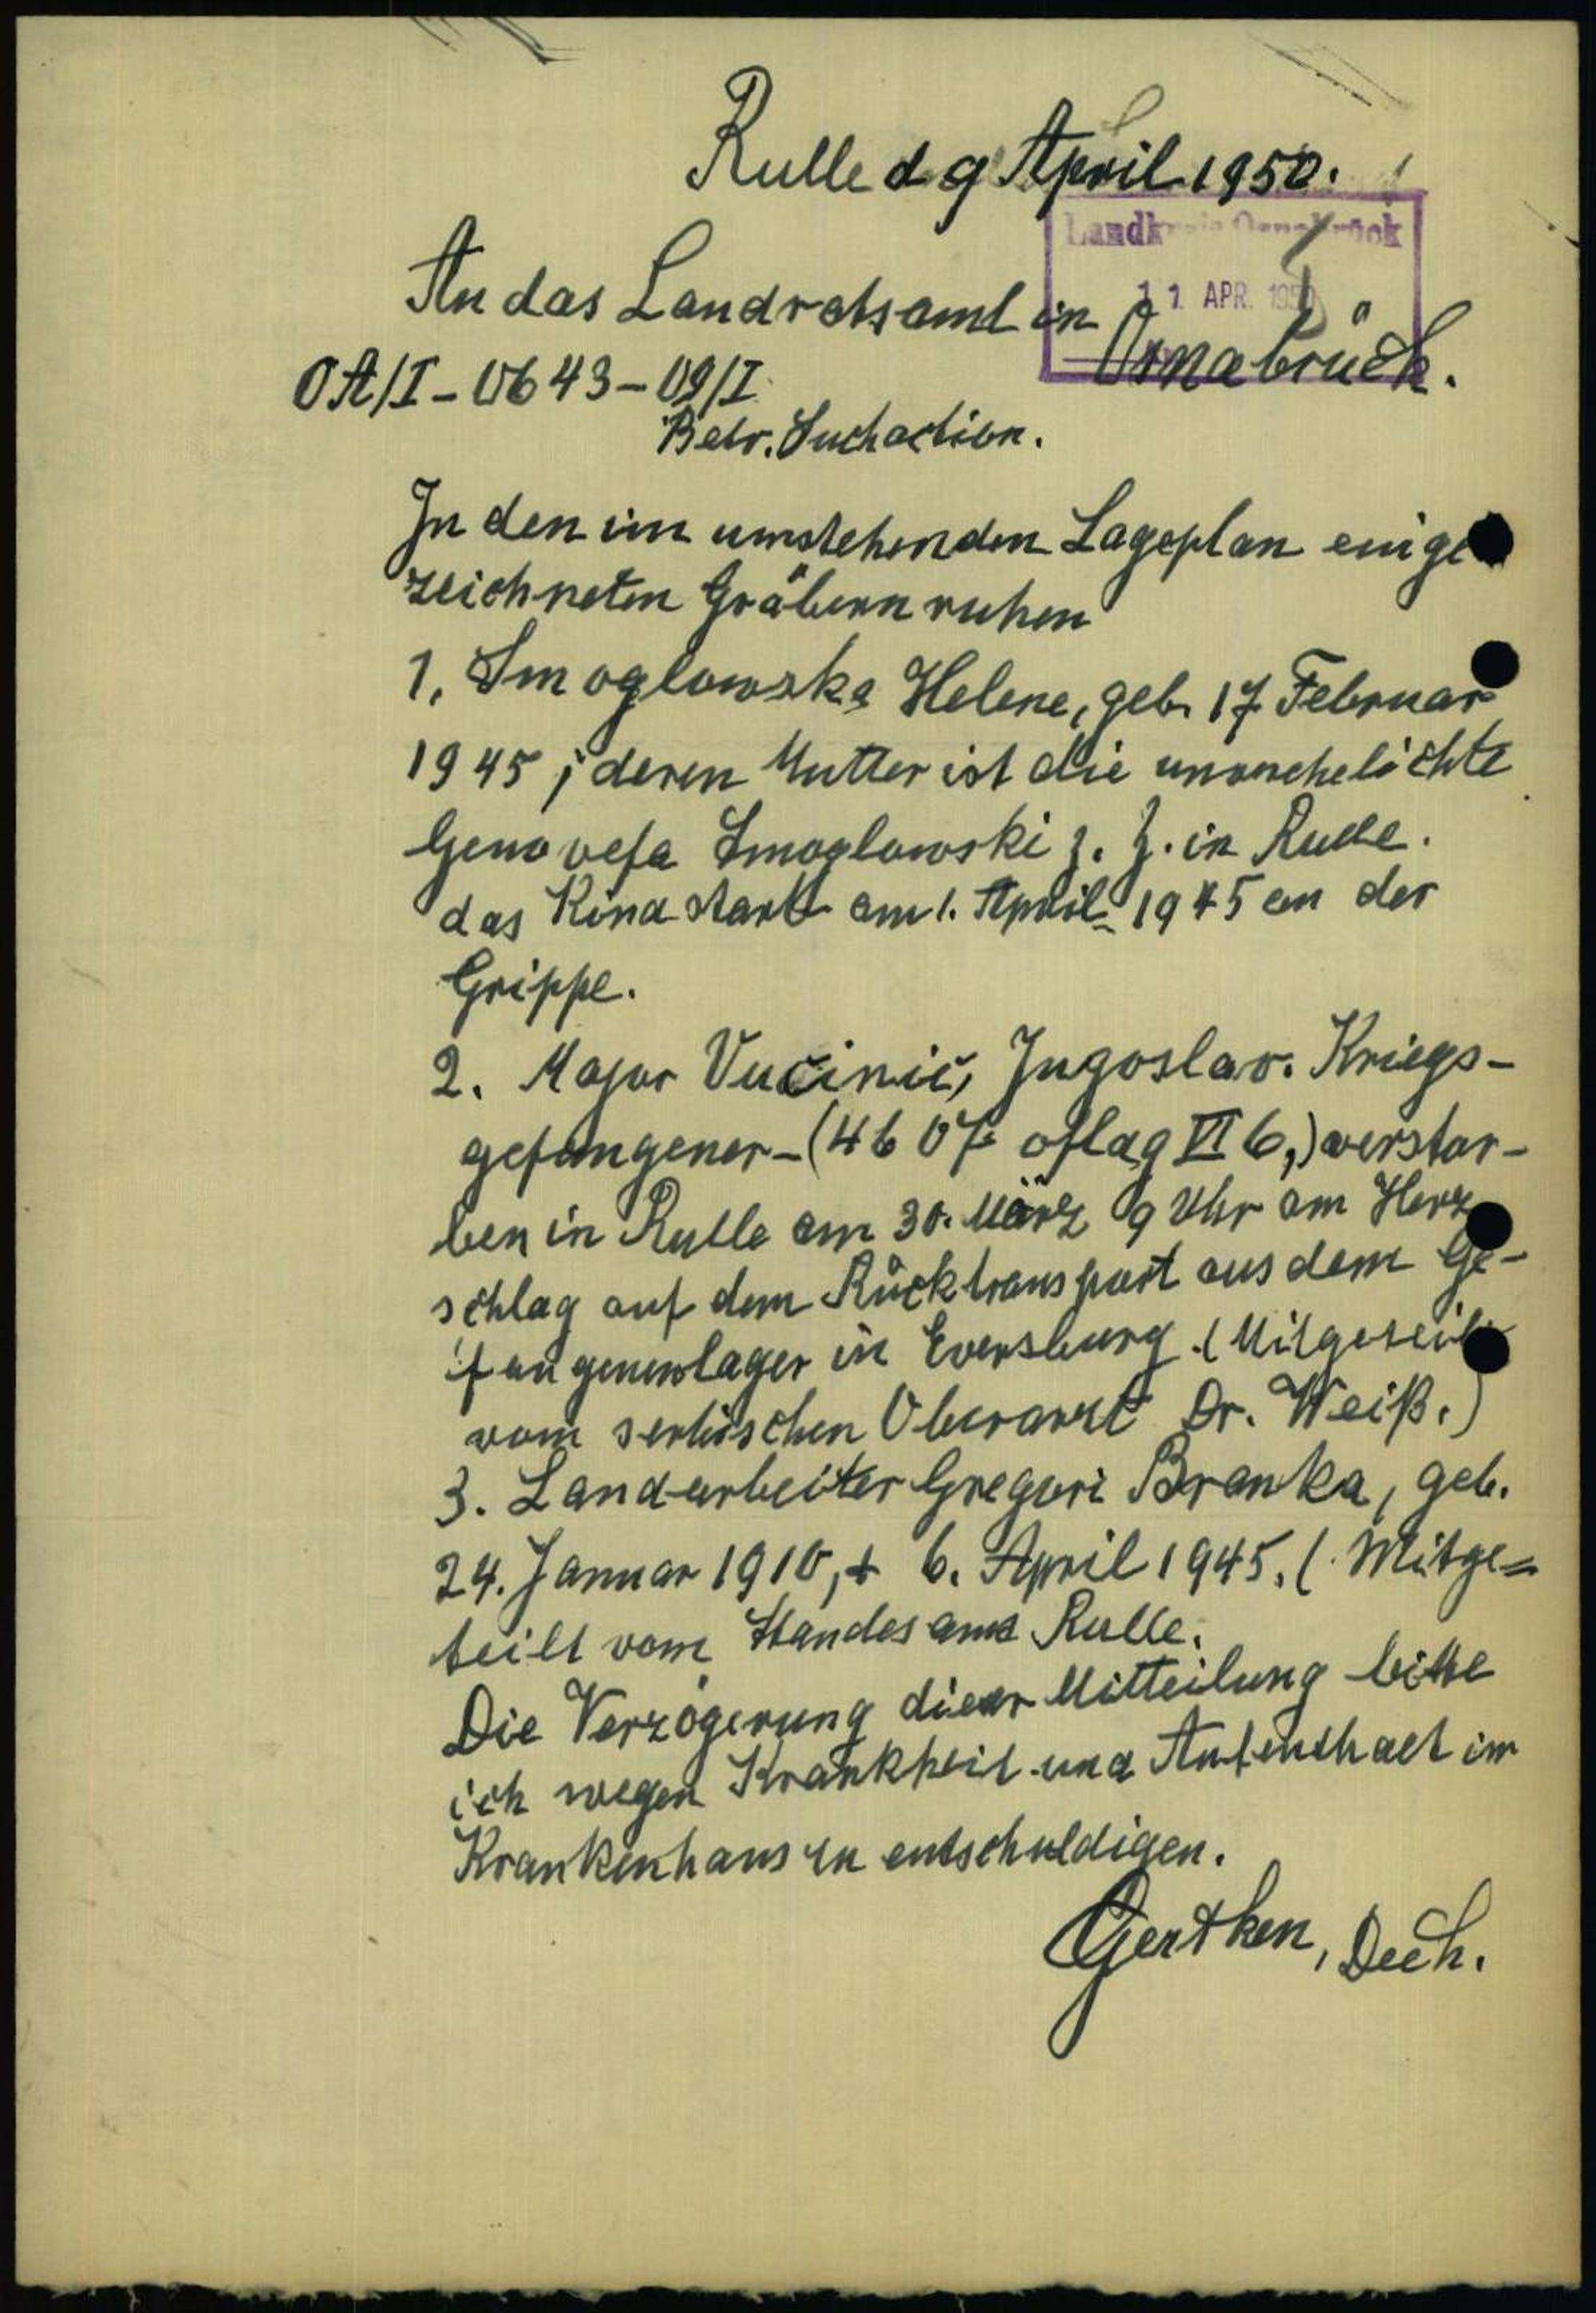 Rulle d 9 April 1950.
Landkreis Osnabrück
11 APR. 1950
An das Landratsamt in
Osnabrück.
OA/I-0643-09/I
Betr. Suchaction.
In den im umstehenden Lageplan einge
zeichneten Gräbern ruhen
1, Smoglowska Helene, geb. 17 Februar
1945; deren Mutter ist die unverehelichte
Genovefa Smoglowski z. Z. in Rulle.
das Kind starb am 1. April 1945 an der
Grippe.
2. Major Vučinič, Jugoslav. Kriegs-
gefangener-(4607 oflag VI 6,) verstor-
ben in Rulle am 30. März 9 Uhr am Herz
schlag auf dem Rücktransport aus dem Ge-
fangenenlager in Eversburg. (Mitgeteilt
vom serbischen Oberarzt Dr. Weiß.)
3. Landarbeiter Gregori Branka, geb.
24. Januar 1910, + 6. April 1945. (Mitge=
teilt vom Standesamt Rulle.
Die Verzögerung dieser Mitteilung bitte
ich wegen Krankheit und Aufenthalt im
Krankenhaus zu entschuldigen.
Gertken, Dech.